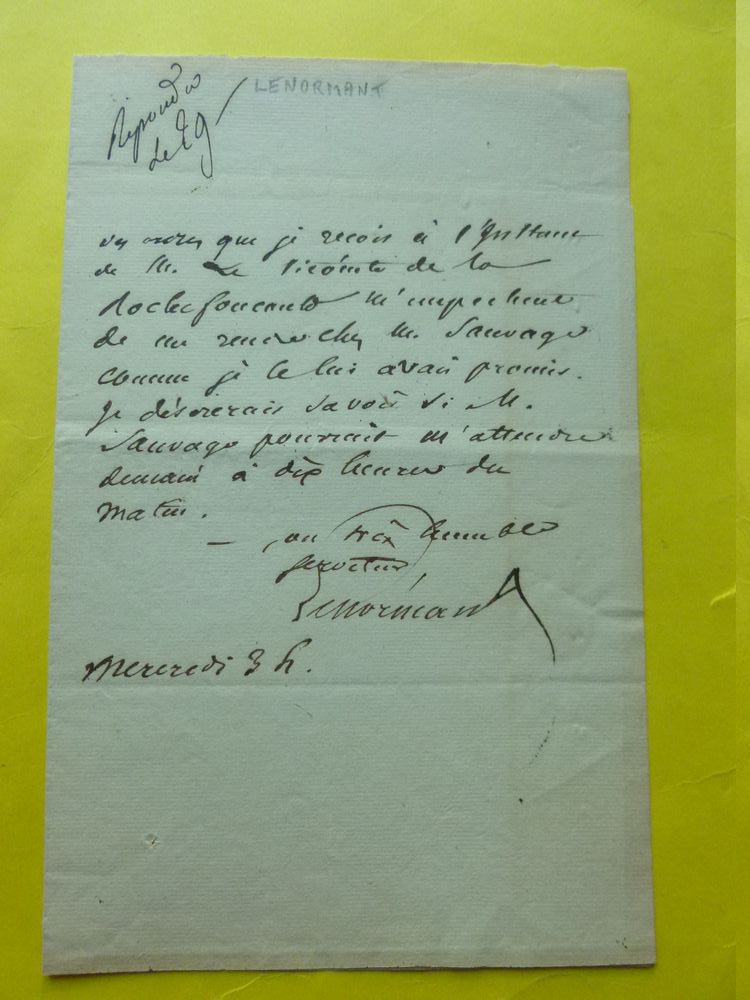 LENORMANT
Répondu
le 29
des ordres que je reçois à l'Instant
de M. Le Vicomte de la
Rochefoucauld m'empechent
de me rendre chez M. Sauvage
comme je le lui avais promis.
Je désirerais savoir si M.
Sauvage pourrait m'attendre
demain à dix heures du
matin.
– Son très humble
serviteur,
Lenormant
Mercredi 3 h.